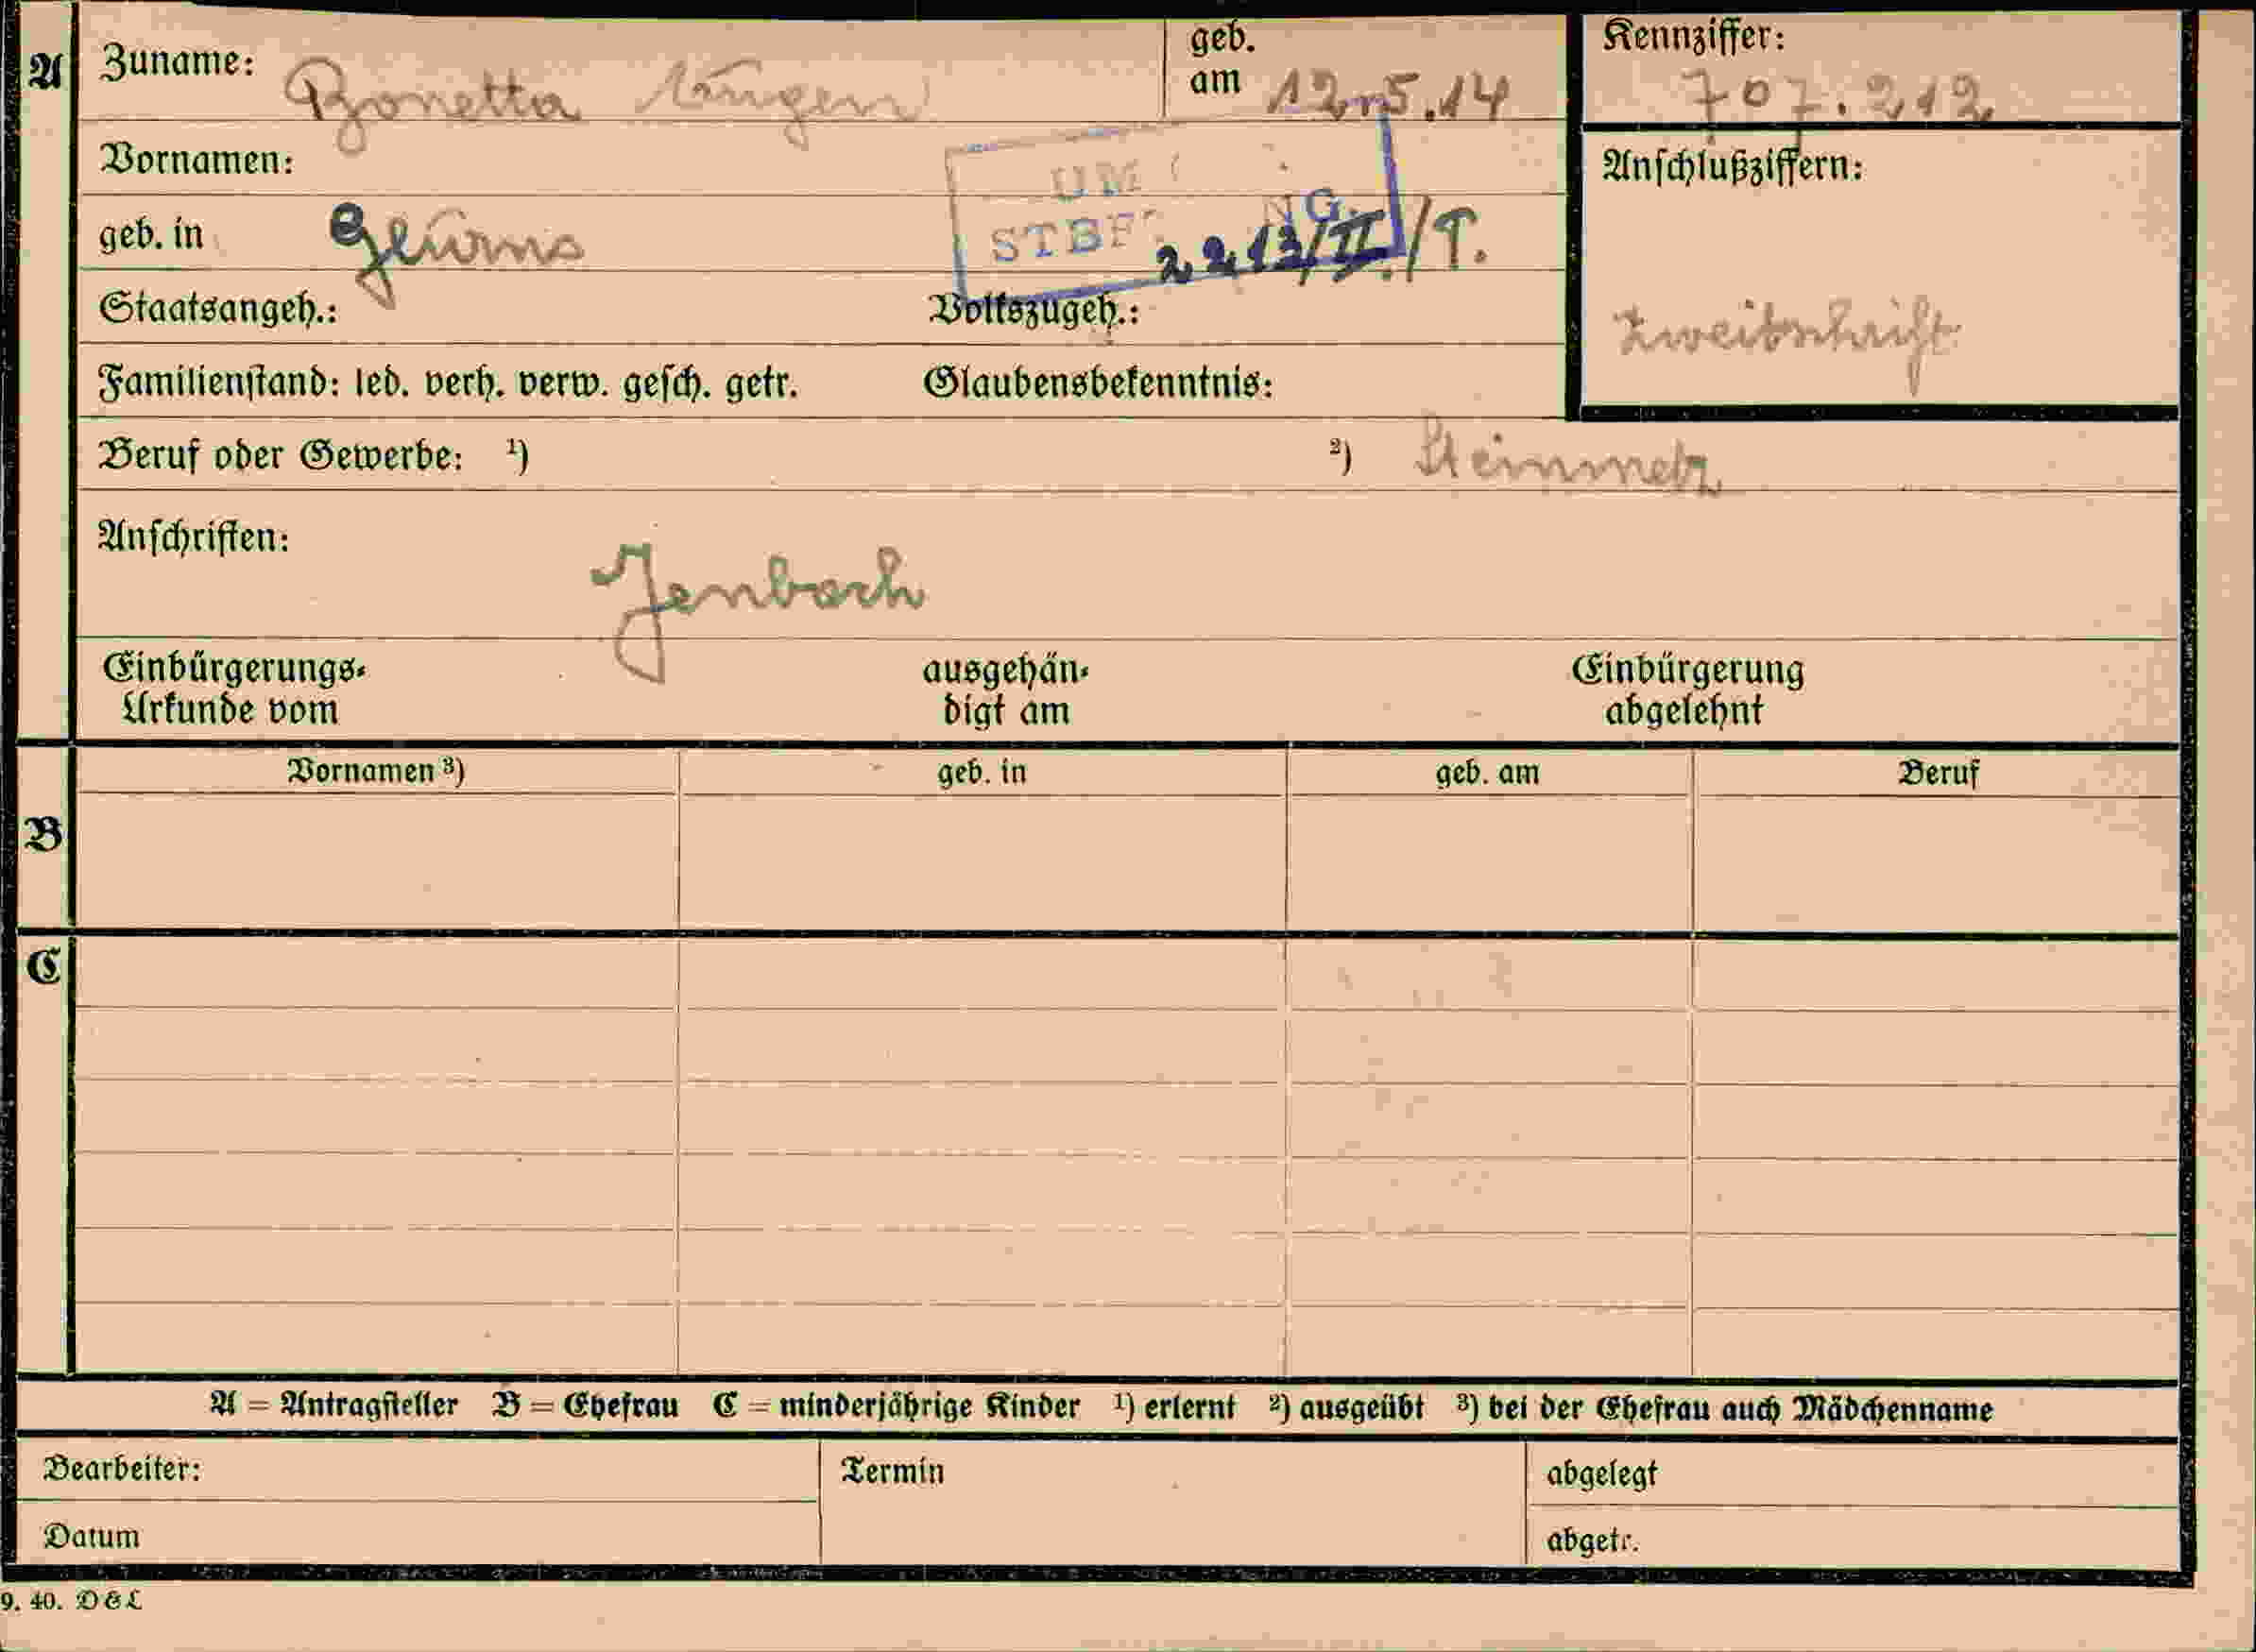 A
Zuname: Bonetta Eugen
geb. am 12.5.14
Kennziffer: 707.212
Vornamen:
Anschlußziffern:
Zweitschrift
UM
STBF NG.
geb. in Glurns
2213/II./T.
Staatsangeh.: Volkszugeh.:
Familienstand: led. verh. verw. gesch. getr. Glaubensbekenntnis:
Beruf oder Gewerbe: ¹) ²) Steinmetz
Anschriften:
Jenbach
Einbürgerungs-
Urkunde vom
ausgehän-
digt am
Einbürgerung
abgelehnt
Vornamen ³) geb. in geb. am Beruf
B
C
A = Antragsteller B = Ehefrau C = minderjährige Kinder ¹) erlernt ²) ausgeübt ³) bei der Ehefrau auch Mädchenname
Bearbeiter: Termin abgelegt
Datum abgetr.
9. 40. D & L